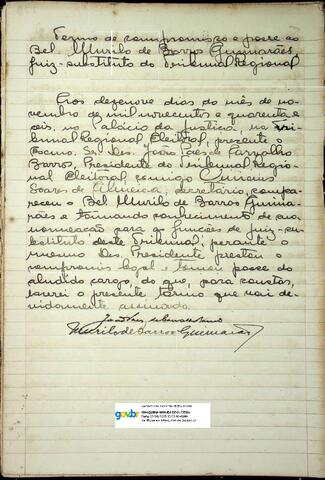 Termo de compromisso e posse ao
Bel. Murilo de Barros Guimarães
juiz-substituto do Tribunal Regional
Aos dezenove dias do mês de no-
vembro de mil novecentos e quarenta e
seis, no Palácio da Justiça, no Tri-
bunal Regional Eleitoral, presente o
Exmo. Sr. Des. João Paes de Carvalho
Barros, Presidente do Tribunal Regio-
nal Eleitoral, comigo
Soares de Almeida, secretário, compa-
receu o Bel Murilo de Barros Guima-
rães e tomando conhecimento de sua
nomeação para as funções de juiz-su-
bstituto deste Tribunal, perante o
mesmo Des. Presidente prestou o
compromisso legal e tomou posse do
aludido cargo, do que, para constar,
lavrei o presente termo que vai de-
vidamente assinado.
Murilo de Barros Guimarães
gov.br